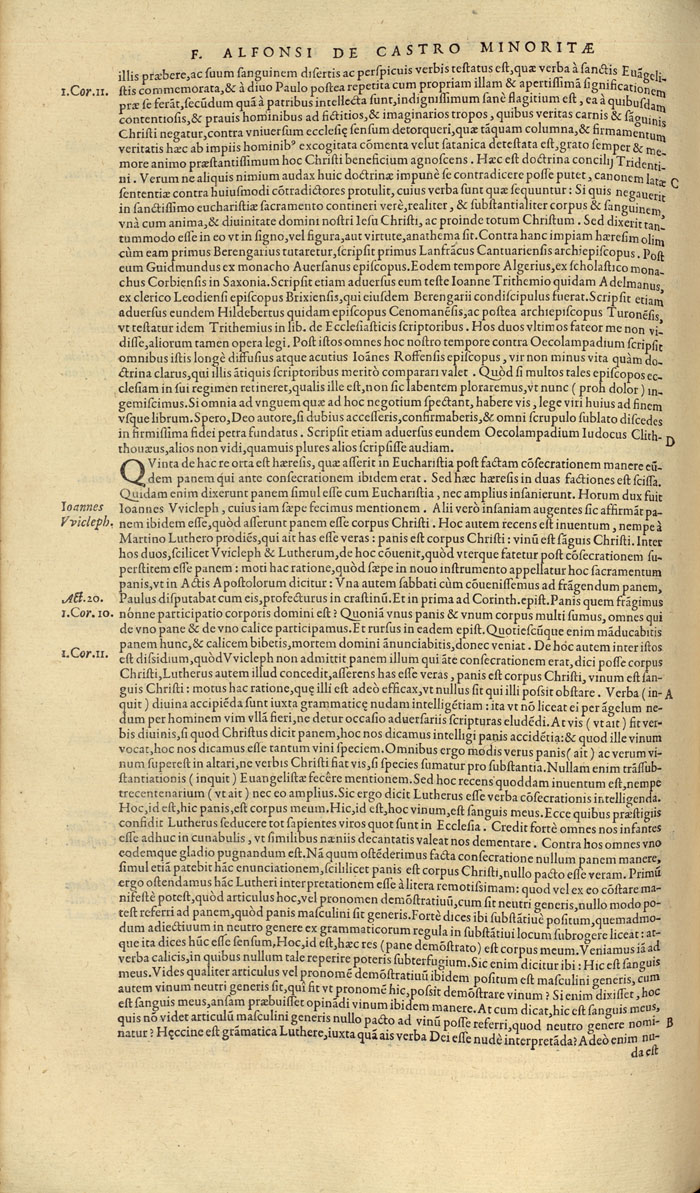 F. ALFONSI DE CASTRO MINORITÆ
illis præbere, ac suum sanguinem disertis ac perspicuis verbis testatus est, quæ verba à sanctis Euãgeli-
1. Cor. 11. stis commemorata, & à diuo Paulo postea repetita cum propriam illam & apertissimã significationem
præ se ferãt, secũdum quã à patribus intellecta sunt, indignissimum sanè flagitium est, ea à quibusdam
contentiosis, & prauis hominibus ad fictitios, & imaginarios tropos, quibus veritas carnis & sãguinis
Christi negatur, contra vniuersum ecclesię sensum detorqueri, quæ tãquam columna, & firmamentum
veritatis hæc ab impiis hominibꝰ excogitata cõmenta velut satanica detestata est, grato semper & me-
more animo præstantissimum hoc Christi beneficium agnoscens. Hæc est doctrina concilij Tridenti-
ni. Verum ne aliquis nimium audax huic doctrinæ impunè se contradicere posse putet, canonem latæ C
sententiæ contra huiusmodi cõtradictores protulit, cuius verba sunt quæ sequuntur: Si quis negauerit
in sanctissimo eucharistiæ sacramento contineri verè, realiter, & substantialiter corpus & sanguinem,
vnà cum anima, & diuinitate domini nostri Iesu Christi, ac proinde totum Christum. Sed dixerit tan-
tummodo esse in eo vt in signo, vel figura, aut virtute, anathema sit. Contra hanc impiam hæresim olim
cùm eam primus Berengarius tutaretur, scripsit primus Lanfrãcus Cantuariensis archiepiscopus. Post
eum Guidmundus ex monacho Auersanus episcopus. Eodem tempore Algerius, ex scholastico mona-
chus Corbiensis in Saxonia. Scripsit etiam aduersus eum teste Ioanne Trithemio quidam Adelmanus,
ex clerico Leodiensi episcopus Brixiensis, qui eiusdem Berengarii condiscipulus fuerat. Scripsit etiam
aduersus eundem Hildebertus quidam episcopus Cenomanẽsis, ac postea archiepiscopus Turonẽsis,
vt testatur idem Trithemius in lib. de Ecclesiasticis scriptoribus. Hos duos vltimos fateor me non vi-
disse, aliorum tamen opera legi. Post istos omnes hoc nostro tempore contra Oecolampadium scripsit
omnibus istis longè diffusius atque acutius Ioãnes Roffensis episcopus, vir non minus vita quàm do-
ctrina clarus, qui illis ãtiquis scriptoribus meritò comparari valet. Quòd si multos tales episcopos ec-
clesiam in sui regimen retineret, qualis ille est, non sic labentem ploraremus, vt nunc (proh dolor) in-
gemiscimus. Si omnia ad vnguem quæ ad hoc negotium spectant, habere vis, lege viri huius ad finem
vsque librum. Spero, Deo autore, si dubius accesseris, confirmaberis, & omni scrupulo sublato discedes
in firmissima fidei petra fundatus. Scripsit etiam aduersus eundem Oecolampadium Iudocus Clith- D
thouæus, alios non vidi, quamuis plures alios scripsisse audiam.
QVinta de hac re orta est hæresis, quæ asserit in Eucharistia post factam cõsecrationem manere eũ-
dem panem qui ante consecrationem ibidem erat. Sed hæc hæresis in duas factiones est scissa.
Quidam enim dixerunt panem simul esse cum Eucharistia, nec amplius insanierunt. Horum dux fuit
Ioannes Ioannes Vvicleph, cuius iam sæpe fecimus mentionem. Alii verò insaniam augentes sic affirmãt pa-
Vvicleph. nem ibidem esse, quòd asserunt panem esse corpus Christi. Hoc autem recens est inuentum, nempe à
Martino Luthero prodiẽs, qui ait has esse veras: panis est corpus Christi: vinũ est sãguis Christi. Inter
hos duos, scilicet Vvicleph & Lutherum, de hoc cõuenit, quòd vterque fatetur post cõsecrationem su-
perstitem esse panem: moti hac ratione, quòd sæpe in nouo instrumento appellatur hoc sacramentum
panis, vt in Actis Apostolorum dicitur: Vna autem sabbati cùm cõuenissemus ad frãgendum panem,
Act. 20. Paulus disputabat cum eis, profecturus in crastinũ. Et in prima ad Corinth. epist. Panis quem frãgimus
1. Cor. 10. nónne participatio corporis domini est? Quoniã vnus panis & vnum corpus multi sumus, omnes qui
de vno pane & de vno calice participamus. Et rursus in eadem epist. Quotiescũque enim mãducabitis
1. Cor. 11. panem hunc, & calicem bibetis, mortem domini ãnunciabitis, donec veniat. De hoc autem inter istos
est dissidium, quòd Vvicleph non admittit panem illum qui ãte consecrationem erat, dici posse corpus
Christi, Lutherus autem illud concedit, asserens has esse veras, panis est corpus Christi, vinum est san-
guis Christi: motus hac ratione, quę illi est adeò efficax, vt nullus sit qui illi possit obstare. Verba (in- A
quit) diuina accipiẽda sunt iuxta grammaticę nudam intelligẽtiam: ita vt nõ liceat ei per ãgelum ne-
dum per hominem vim vllã fieri, ne detur occasio aduersariis scripturas eludẽdi. At vis (vt ait) fit ver-
bis diuinis, si quod Christus dicit panem, hoc nos dicamus intelligi panis accidẽtia: & quod ille vinum
vocat, hoc nos dicamus esse tantum vini speciem. Omnibus ergo modis verus panis (ait) ac verum vi-
num superest in altari, ne verbis Christi fiat vis, si species sumatur pro substantia. Nullam enim trãssub-
stantiationis (inquit) Euangelistæ fecêre mentionem. Sed hoc recens quoddam inuentum est, nempe
trecentenarium (vt ait) nec eo amplius. Sic ergo dicit Lutherus esse verba cõsecrationis intelligenda.
Hoc, id est, hic panis, est corpus meum. Hic, id est, hoc vinum, est sanguis meus. Ecce quibus præstigiis
confidit Lutherus seducere tot sapientes viros quot sunt in Ecclesia. Credit fortè omnes nos infantes
esse adhuc in cunabulis, vt similibus næniis decantatis valeat nos dementare. Contra hos omnes vno
eodemque gladio pugnandum est. Nã quum ostẽderimus facta consecratione nullum panem manere,
simul etiã patebit hãc enunciationem, scilicet panis est corpus Christi, nullo pacto esse veram. Primũ
ergo ostendamus hãc Lutheri interpretationem esse à litera remotissimam: quod vel ex eo cõstare ma-
nifestè potest, quòd articulus hoc, vel pronomen demõstratiuũ, cum sit neutri generis, nullo modo po-
test referri ad panem, quòd panis masculini sit generis. Fortè dices ibi substãtiuè positum, quemadmo-
dum adiectiuum in neutro genere ex grammaticorum regula in substãtiui locum subrogere liceat: at-
que ita dices hũc esse sensum, Hoc, id est, hæc res (pane demõstrato) est corpus meum. Veniamus iã ad
verba calicis, in quibus nullum tale reperire poteris subterfugium. Sic enim dicitur ibi: Hic est sanguis
meus. Vides qualiter articulus vel pronomẽ demõstratiuũ ibidem positum est masculini generis, cum
autem vinum neutri generis sit, quî fit vt pronomẽ hic, possit demõstrare vinum? Si enim dixisset, hoc
est sanguis meus, ansam præbuisset opinãdi vinum ibidem manere. At cum dicat, hic est sanguis meus,
quis nõ videt articulũ masculini generis nullo pacto ad vinũ posse referri, quod neutro genere nomi- B
natur? Hęccine est grãmatica Luthere, iuxta quã ais verba Dei esse nudè interpretãda? Adeò enim nu-
da est